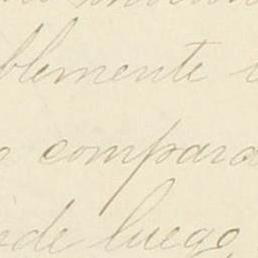 blemente
compara
de luego,